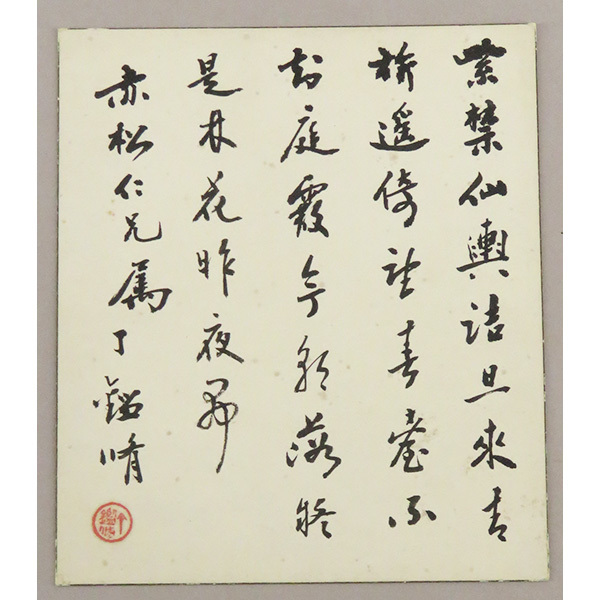 紫禁仙輿詰旦來青
旂遙倚望春臺不
知庭霰今朝落疑
是林花昨夜開
赤松仁兄屬丁鑑脩